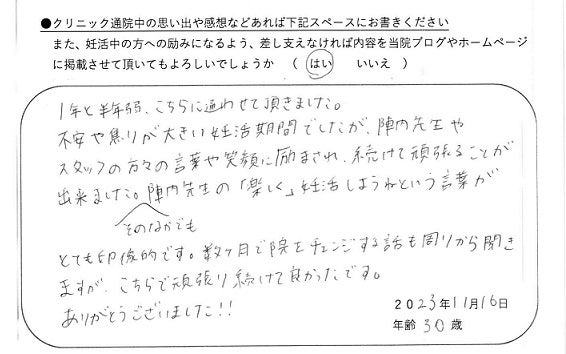 ●クリニック通院中の思い出や感想などあれば下記スペースにお書きください
また、妊活中の方への励みになるよう、差し支えなければ内容を当院ブログやホームページ
に掲載させて頂いてもよろしいでしょうか （ はい いいえ ）
1年と半年弱、こちらに通わせて頂きました。
不安や焦りが大きい妊活期間でしたが、陣内先生や
スタッフの方々の言葉や笑顔に励まされ、続けて頑張ることが
出来ました。陣内先生の「楽しく」妊活しようねという言葉が
そのなかでも
とても印象的です。数ヶ月で院をチェンジする話も周りから聞き
ますが、こちらで頑張り続けて良かったです。
ありがとうございました!!
2023年11月16日
年齢 30 歳